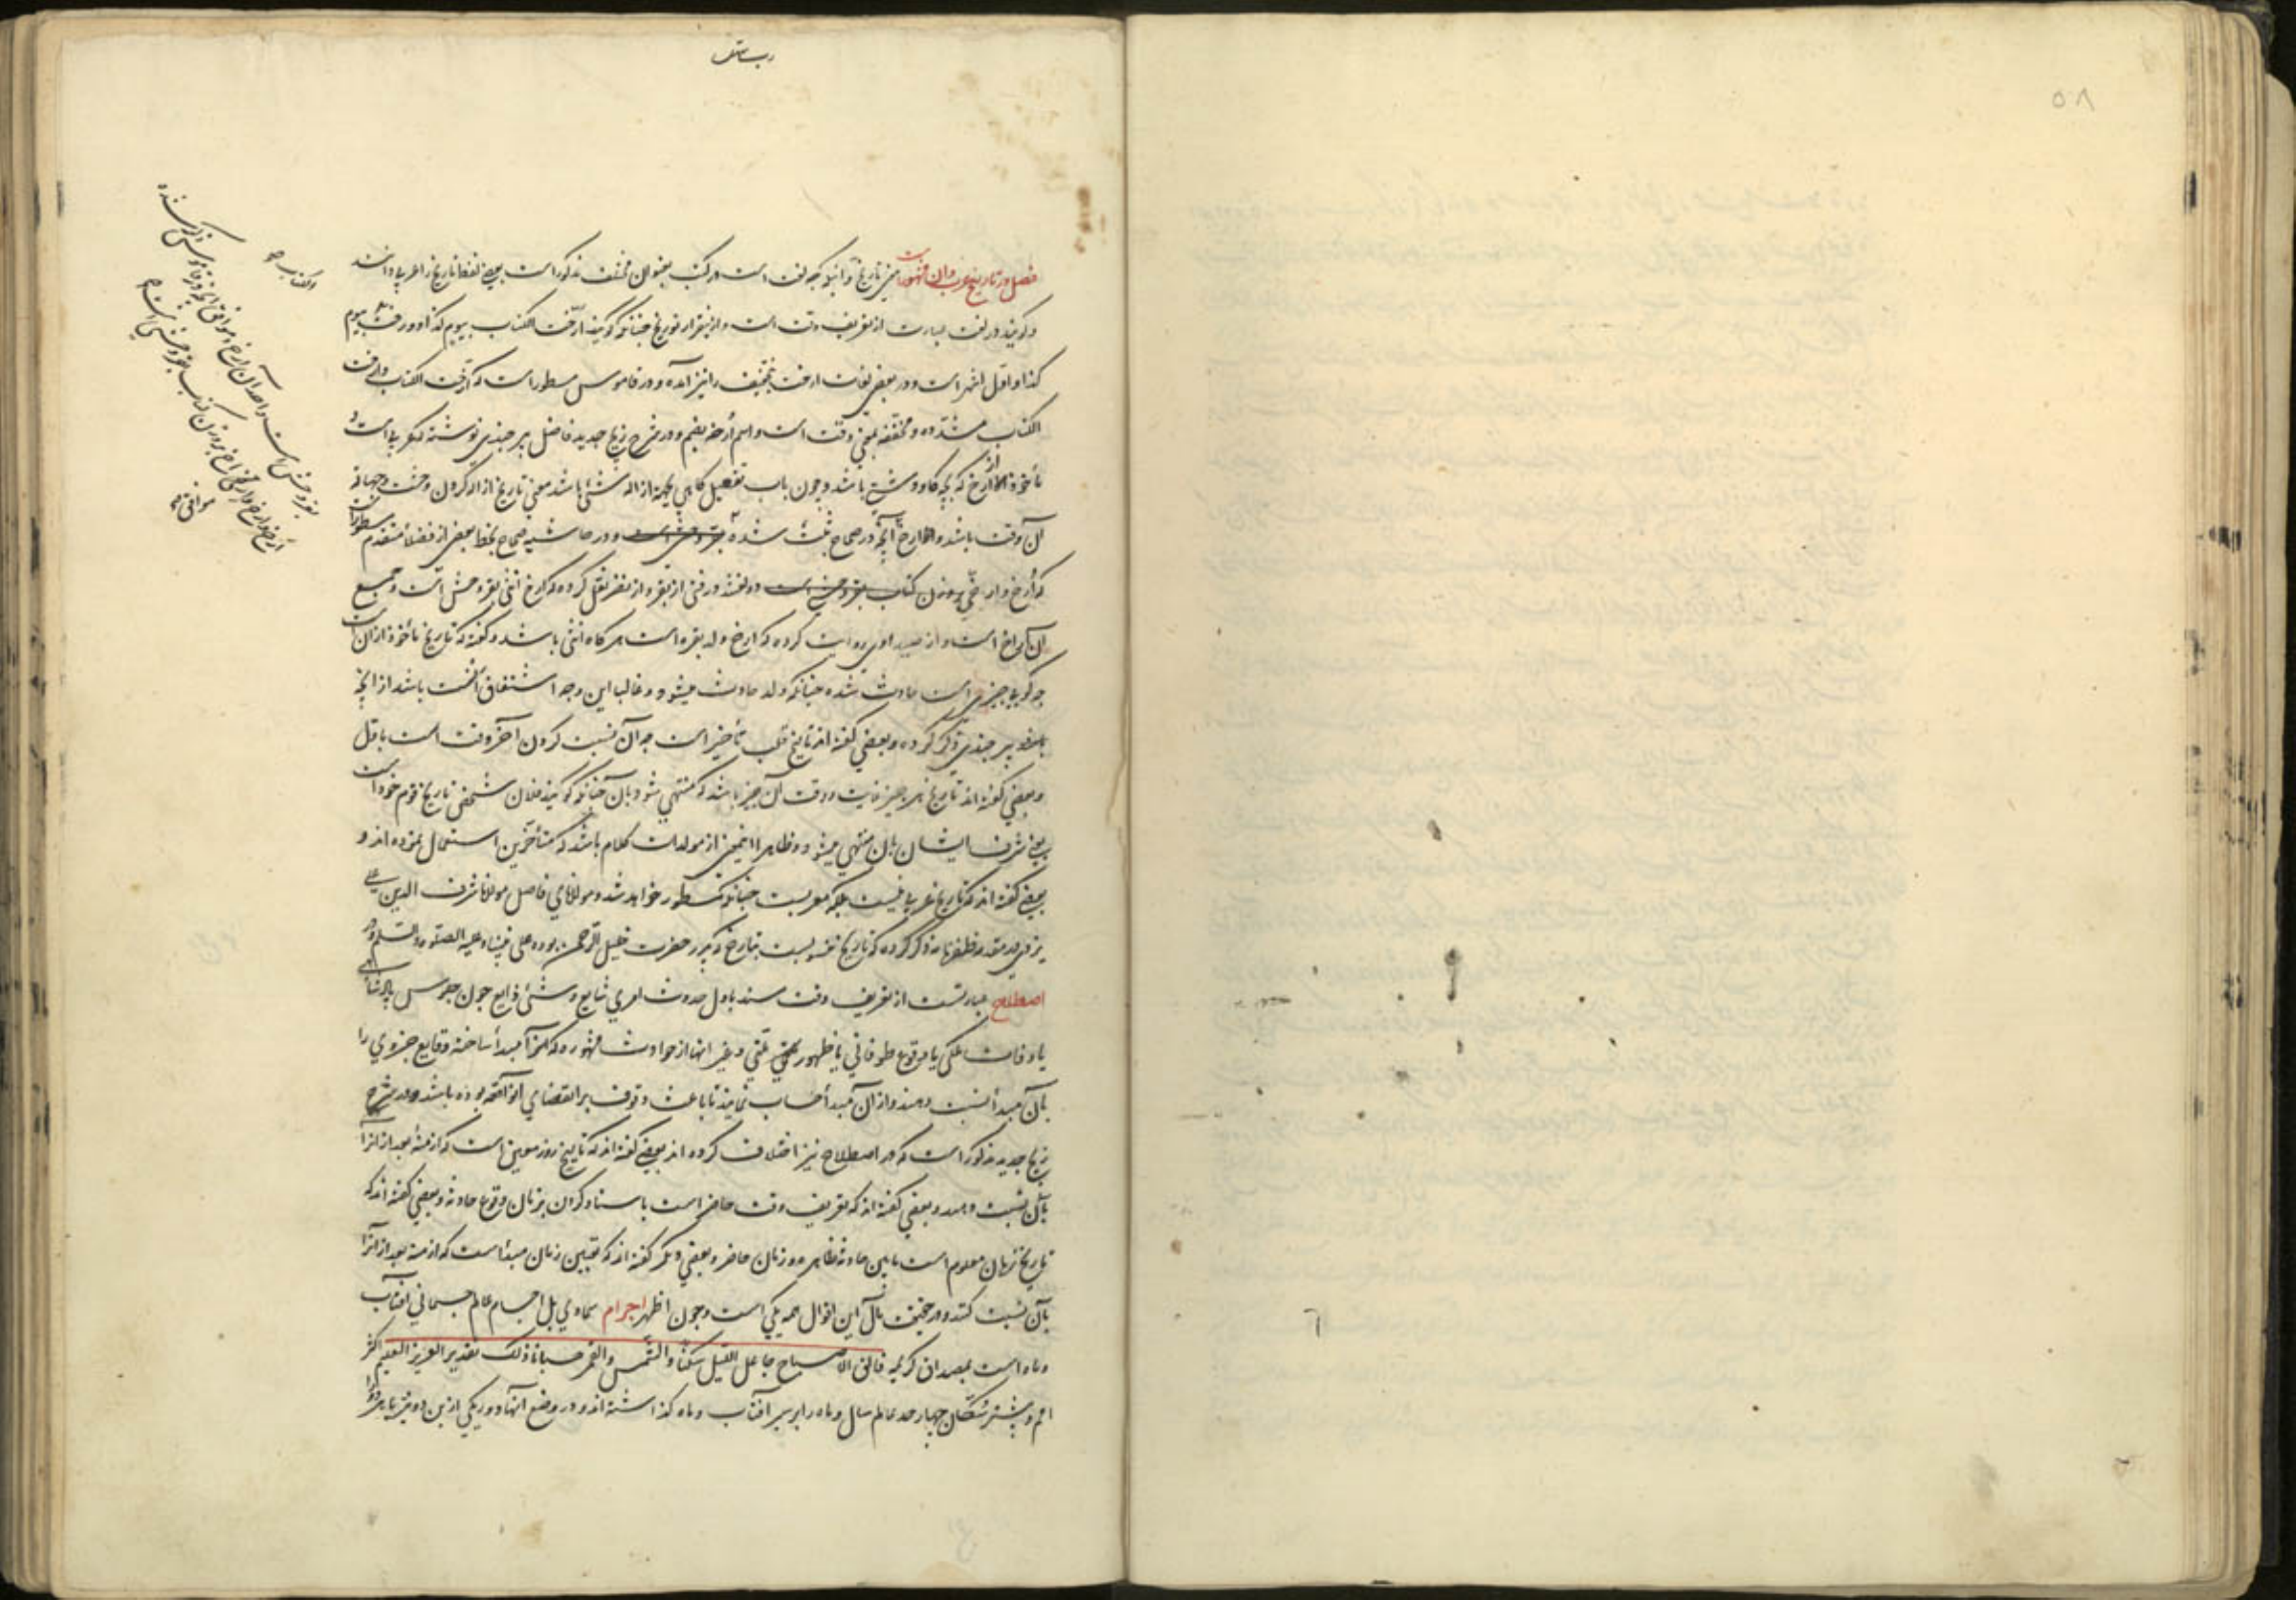 فصل در تاریخ عرب و آن مشهور است تاریخ آنچه لغت است در کتب بعنوان مختلف مذکور است بعضی لفظ تاریخ را عربی دانند
و گویند در لغت عبارت از تعریف وقت است چنانکه گویند ارّخت الکتاب بیوم کذا و ورّخت بیوم
کذا و اول اشهر است و در بعضی لغات ارخت بتخفیف را نیز آمده و در قاموس مسطور است که ارّخت الکتاب و ارخت
الکتاب مشدّده و مخففه بمعنی وقت است و اسم ارخه بضم و در شرح زیج جدید فاضل بیرجندی نوشته که عربی است و
مأخوذ از ارخ که بچه گاو وحشی باشد و چون باب تفعیل گاهی بجهة ازاله شئ باشد معنی تاریخ ازاله کردن وحشت و جهالة
آن وقت باشد و الارخ آنچه در صحاح ثبت شده و در حاشیه صحاح بخط بعضی از فضلاء متقدم مسطور است
که ارخ و ارخی بر وزن کتاب نقل کرده که ارخ انثی بقره وحشی است و جمع
آن اراخ است و از صیداوی روایت کرده که ارخ ولد بقره است هرگاه انثی باشد و گفته که تاریخ مأخوذ از آن است
چه گویی چیزی است حادث شده چنانکه ولد حادث میشود و غالبا این وجه اشتقاق انسب باشد از آنچه
بیرجندی ذکر کرده و بعضی گفته اند تاریخ قلب تأخیر است چه آن نسبت کردن آخر وقت است باول
و بعضی گفته اند تاریخ هر چیز غایت و وقت آن چیز باشد که منتهی شود بآن چنانکه گویند فلان شخص تاریخ قوم خود است
یعنی شرف ایشان بآن منتهی میشود و ظاهرا اینمعنی از مولدات کلام باشد که متأخرین استعمال نموده اند و
بعضی گفته اند که تاریخ عربی نیست بلکه معربست چنانکه مسطور خواهد شد و مولانای فاضل مولانا شرف الدین علی
یزدی در مقدمه ظفرنامه ذکر کرده که تاریخ منسوبست بتارخ که پدر حضرت خلیل الرحمن بوده علی نبینا و علیه الصلوة و السلم و در
اصطلاح عبارتست از تعریف وقت باول حدوث امری شایع و شئ ذایع چون جلوس پادشاهی
یا وفات ملکی یا وقوع طوفانی یا ظهور ملتی و غیر اینها از حوادث مشهوره که آنرا مبدأ ساخته وقایع جزوی را
بآن مبدأ نسبت دهند و از آن مبدأ حساب نمایند تا باعث وقوف بر انقضای آنواقعه بوده باشد و در شرح
زیج جدید مذکور است که در اصطلاح نیز اختلاف کرده اند بعضی گفته اند که تاریخ روز معین است که ازمنه بعد از آنرا
بآن نسبت دهند و بعضی گفته اند که تعریف وقت حاضر است باسناد کردن بزمان وقوع حادثه و بعضی گفته اند که
تاریخ زمان معلوم است مابین حادثه ظاهره و زمان حاضر و بعضی دیگر گفته اند که تعیین زمان مبدأست که ازمنه بعد از آنرا
بآن نسبت کنند و در حقیقت مآل این اقوال همه یکی است و چون اظهر اجرام سماوی بل اجسام عالم جسمانی آفتاب
و ماه است بمصداق کریمه فالق الاصباح جاعل اللیل سکنا و الشمس و القمر حسبانا ذلک تقدیر العزیز العلیم اکثر
امم و بیشتر سکان چهار حد عالم سال و ماه را بر سیر آفتاب و ماه گذاشته اند و در وضع آنها دور یکی از این دو نیر یا هر دو را
۵۸